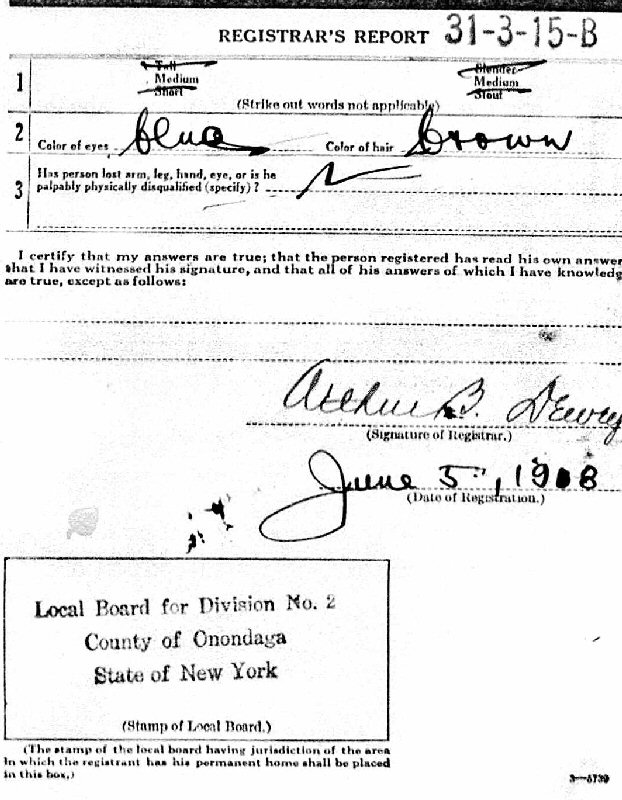 REGISTRAR'S REPORT 31-3-15-B
1 Tall Slender
Medium Medium
Short Stout
(Strike out words not applicable)
2 Color of eyes blue Color of hair brown
Has person lost arm, leg, hand, eye, or is he
3 palpably physically disqualified (specify)?
I certify that my answers are true; that the person registered has read his own answer
that I have witnessed his signature, and that all of his answers of which I have knowledg
are true, except as follows:
Arthur B. Dewey
(Signature of Registrar.)
June 5, 1918
(Date of Registration.)
Local Board for Division No. 2
County of Onondaga
State of New York
(Stamp of Local Board.)
(The stamp of the local board having jurisdiction of the area
in which the registrant has his permanent home shall be placed
in this box.)
3—6739